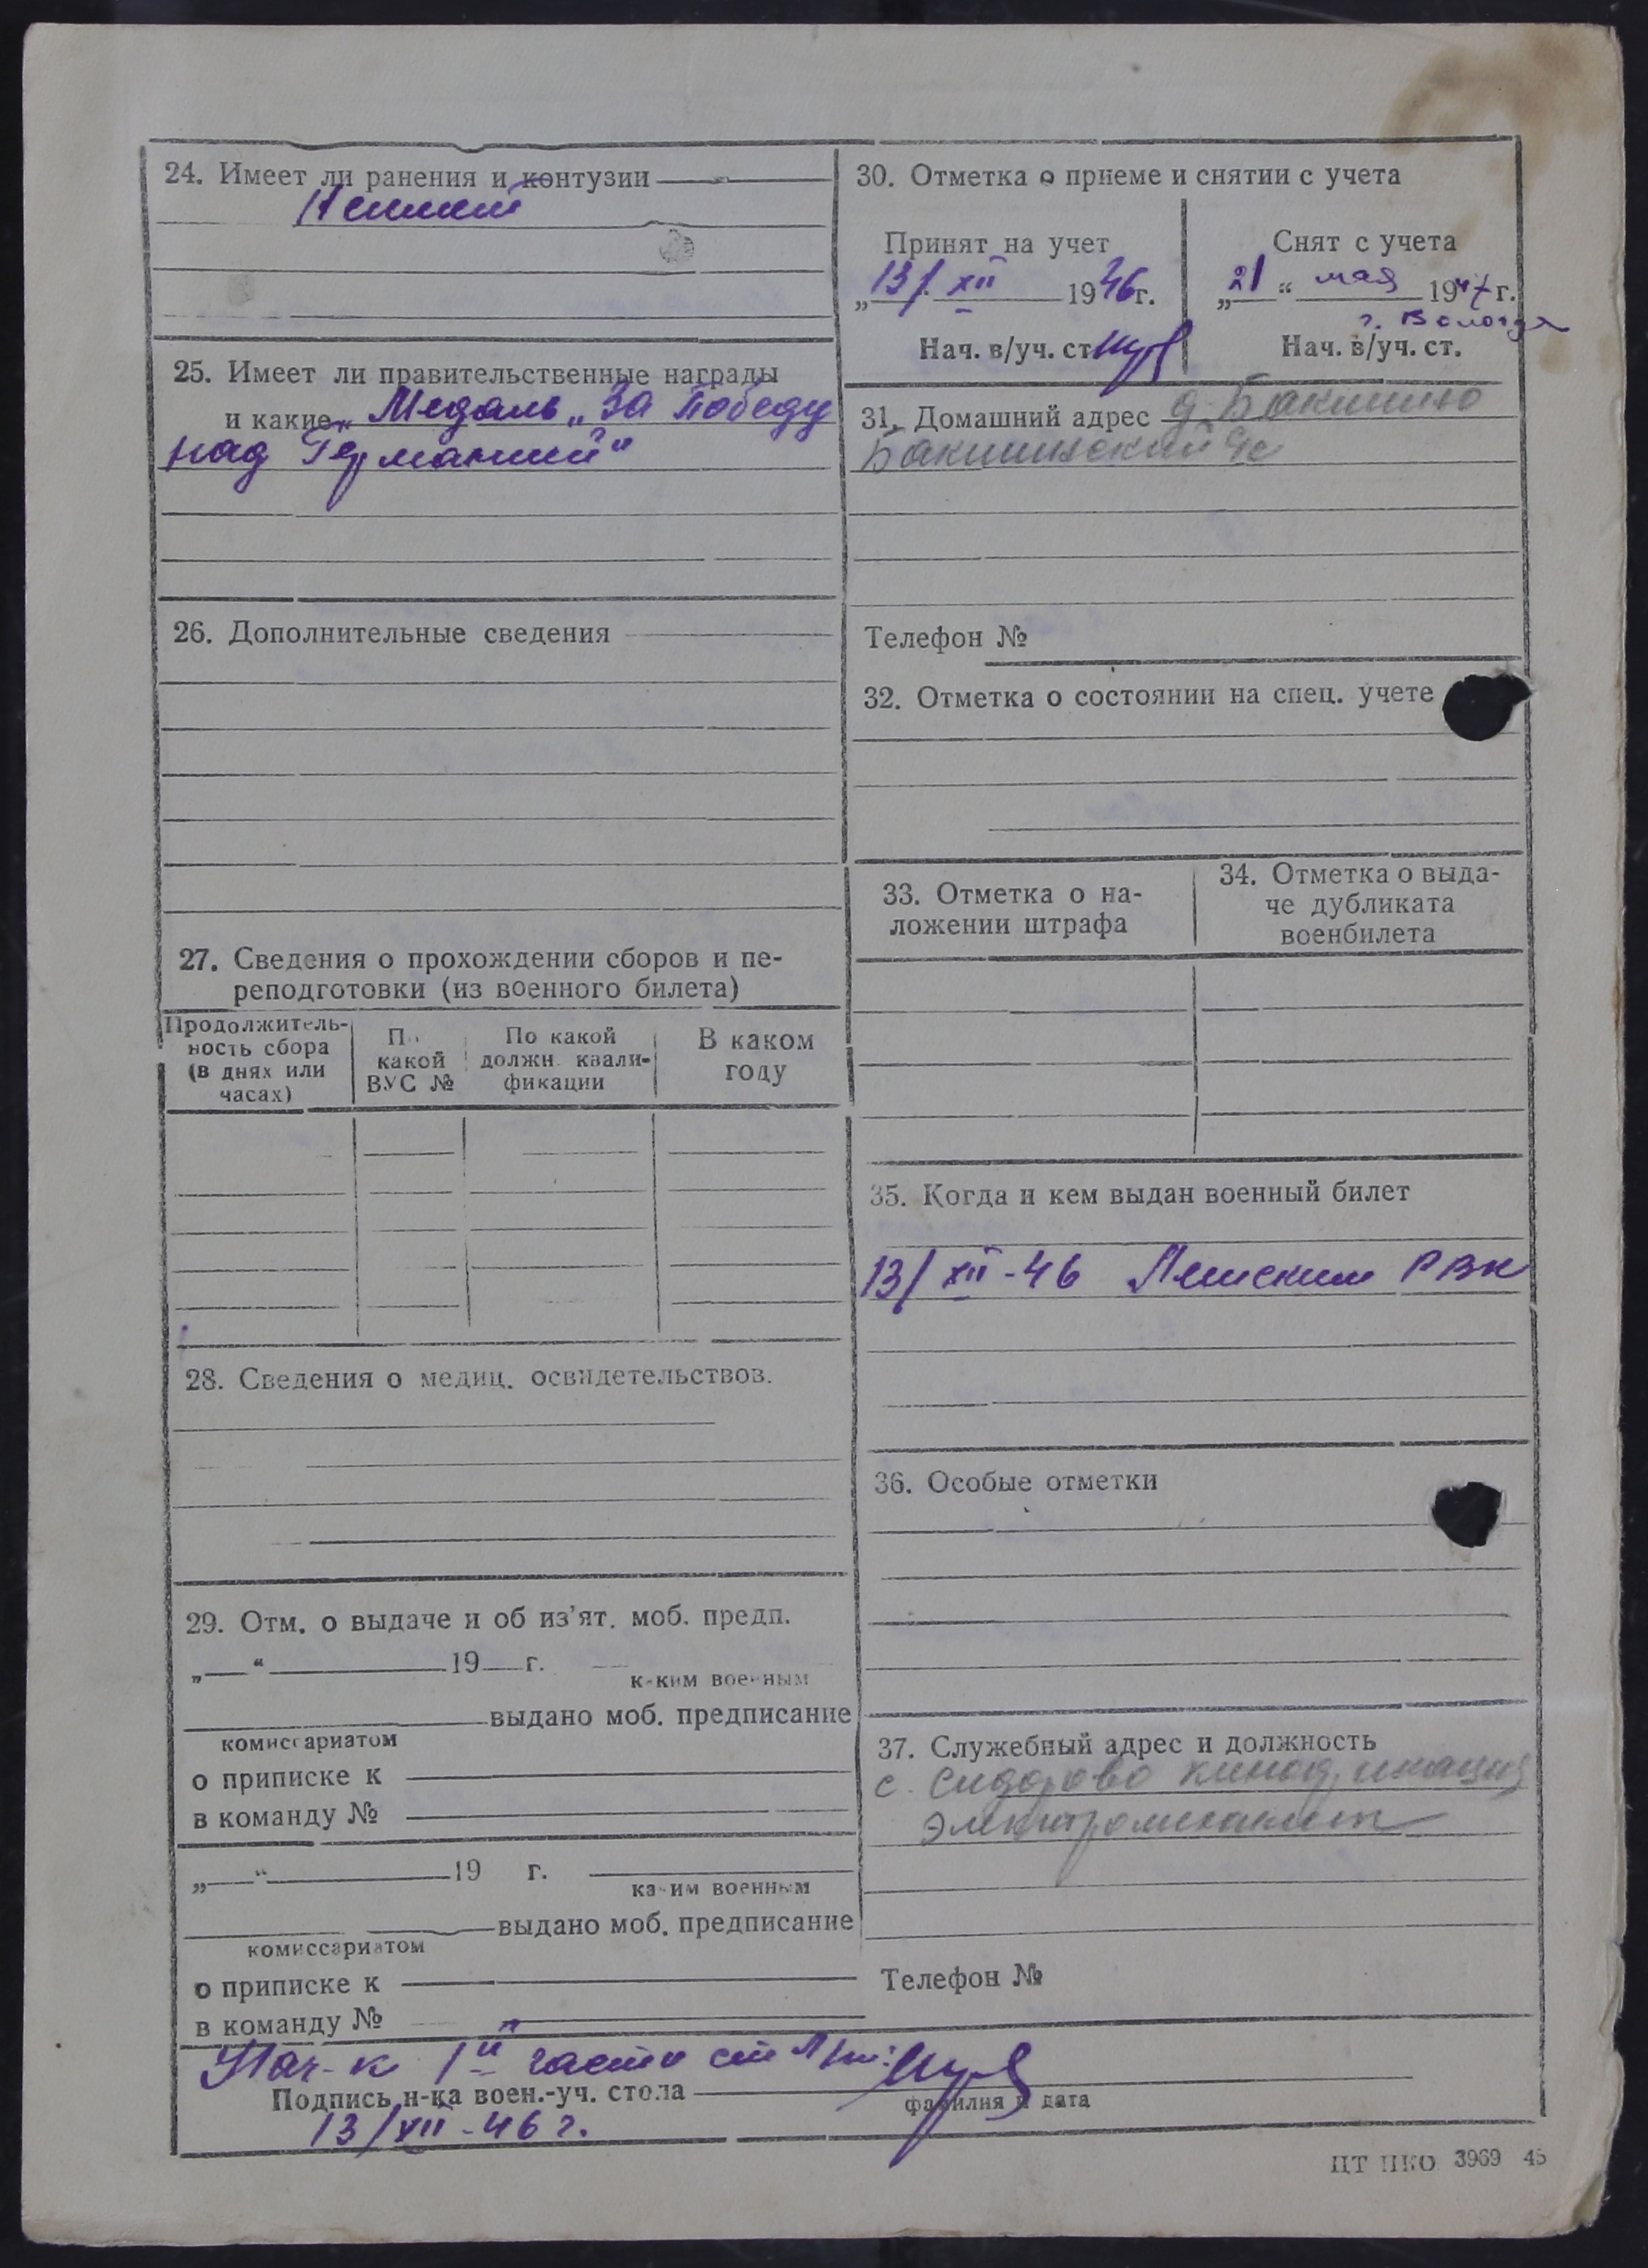 24. Имеет ли ранения и контузии
Неимеет
25. Имеет ли правительственные награды
и какие „Медаль „За победу
над Германией“
26. Дополнительные сведения
27. Сведения о прохождении сборов и пе-
реподготовки (из военного билета)
Продолжитель-
ность сбора
(в днях или
часах)
По
какой
ВУС №
По какой
должн. квали-
фикации
В каком
году
28. Сведения о медиц. освидетельствов.
29. Отм. о выдаче и об из’ят. моб. предп.
„ “ 19 г.
каким военным
выдано моб. предписание
комиссариатом
о приписке к
в команду №
„ “ 19 г.
каким военным
выдано моб. предписание
комиссариатом
о приписке к
в команду №
30. Отметка о приеме и снятии с учета
Принят на учет
„13/ XII 1946г.
Нач. в/уч. ст.
Снят с учета
„21“ мая 1947г.
г. Вологда
Нач. в/уч. ст.
31. Домашний адрес д. Бакшино
Бакшинский с/с
Телефон №
32. Отметка о состоянии на спец. учете
33. Отметка о на-
ложении штрафа
34. Отметка о выда-
че дубликата
военбилета
35. Когда и кем выдан военный билет
13/XII-46 Лежским РВК
36. Особые отметки
37. Служебный адрес и должность
с. Сидорово
электромеханик
Телефон №
Нач-к 1й части
Подпись н-ка воен.-уч. стола
фамилия и дата
13/XII-46 г.
ЦТ НКО 3969 45